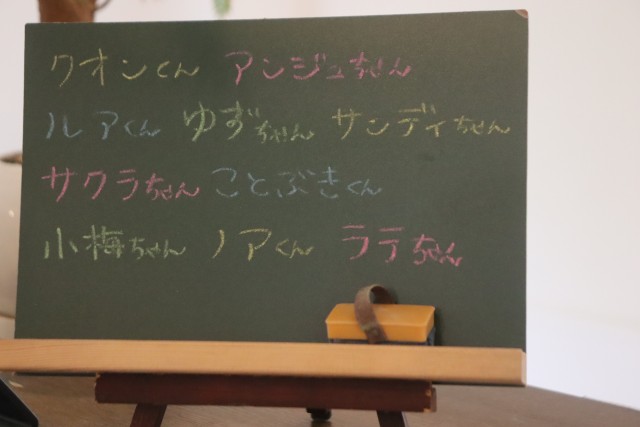 クオンくん アンジュちゃん
ルアくん ゆずちゃん サンディちゃん
サクラちゃん ことぶきくん
小梅ちゃん ノアくん ラテちゃん